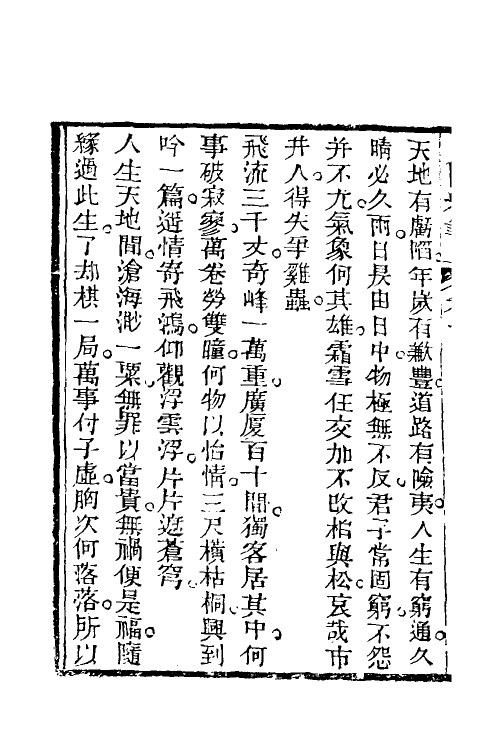 天地有虧陷。年歲有歉豐。道路有險夷。人生有窮通。久
晴必久雨。日昃由日中。物極無不反。君子常固窮。不怨
并不尤。氣象何其雄。霜雪任交加。不改栢與松。哀哉市
井人。得失爭雞蟲。
飛流三千丈。奇峰一萬重。廣厦百十間。獨客居其中。何
事破寂寥。萬卷勞雙瞳。何物以怡情。三尺橫枯桐。興到
吟一篇。遊情寄飛鴻。仰觀浮雲浮。片片遊蒼穹。
人生天地間。滄海渺一粟。無罪以當貴。無禍便是福。隨
緣過此生。了却棋一局。萬事付子虛。胸次何落落。所以